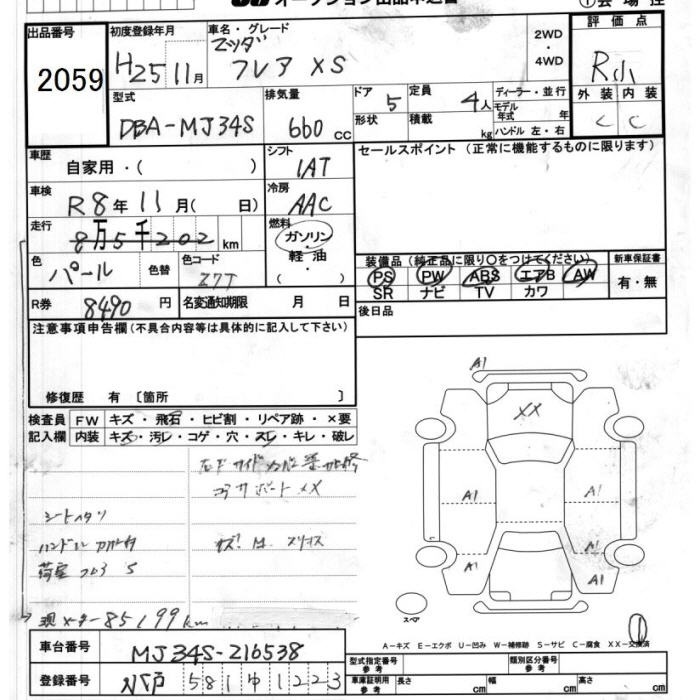 オークション出品申込書
①会場控
出品番号
2059
初度登録年月
H25 11月
車名・グレード
マツダ
フレア XS
2WD
・
4WD
評価点
R小
外装 内装
C C
型式
DBA-MJ34S
排気量
660 cc
ドア 5
形状
定員 4人
積載 kg
ディーラー・並行
モデル年式 年
ハンドル 左・右
車歴
自家用・( )
シフト
IAT
セールスポイント(正常に機能するものに限ります)
車検
R8年 11月( 日)
冷房
AAC
走行
8万5千202km
燃料
ガソリン・
軽・油
( )
色
パール
色替
色コード
Z7T
装備品(純正品に限り○をつけてください)
PS PW ABS エアB AW
SR ナビ TV カワ
新車保証書
有・無
R券 8490円
名変通知期限 月 日
後日品
注意事項申告欄(不具合内容等は具体的に記入して下さい)
修復歴 有〔箇所 〕
検査員 FW キズ・飛石・ヒビ割・リペア跡・×要
記入欄 内装 キズ・汚レ・コゲ・穴・スレ・キレ・破レ
コアサポートXX
シートヘタリ
ハンドル
荷室
S
現メーター85199km
A1
XX
A1
A1
A1
A1
A1
A1
スペア
①
A-キズ E-エクボ U-凹み W-補修跡 S-サビ C-腐食 XX-交換済
車台番号
MJ34S-216538
登録番号
581 ゆ 1223
型式指定番号
参考
類別区分番号
参考
車庫証明用
参考
長さ cm 幅 cm 高さ cm